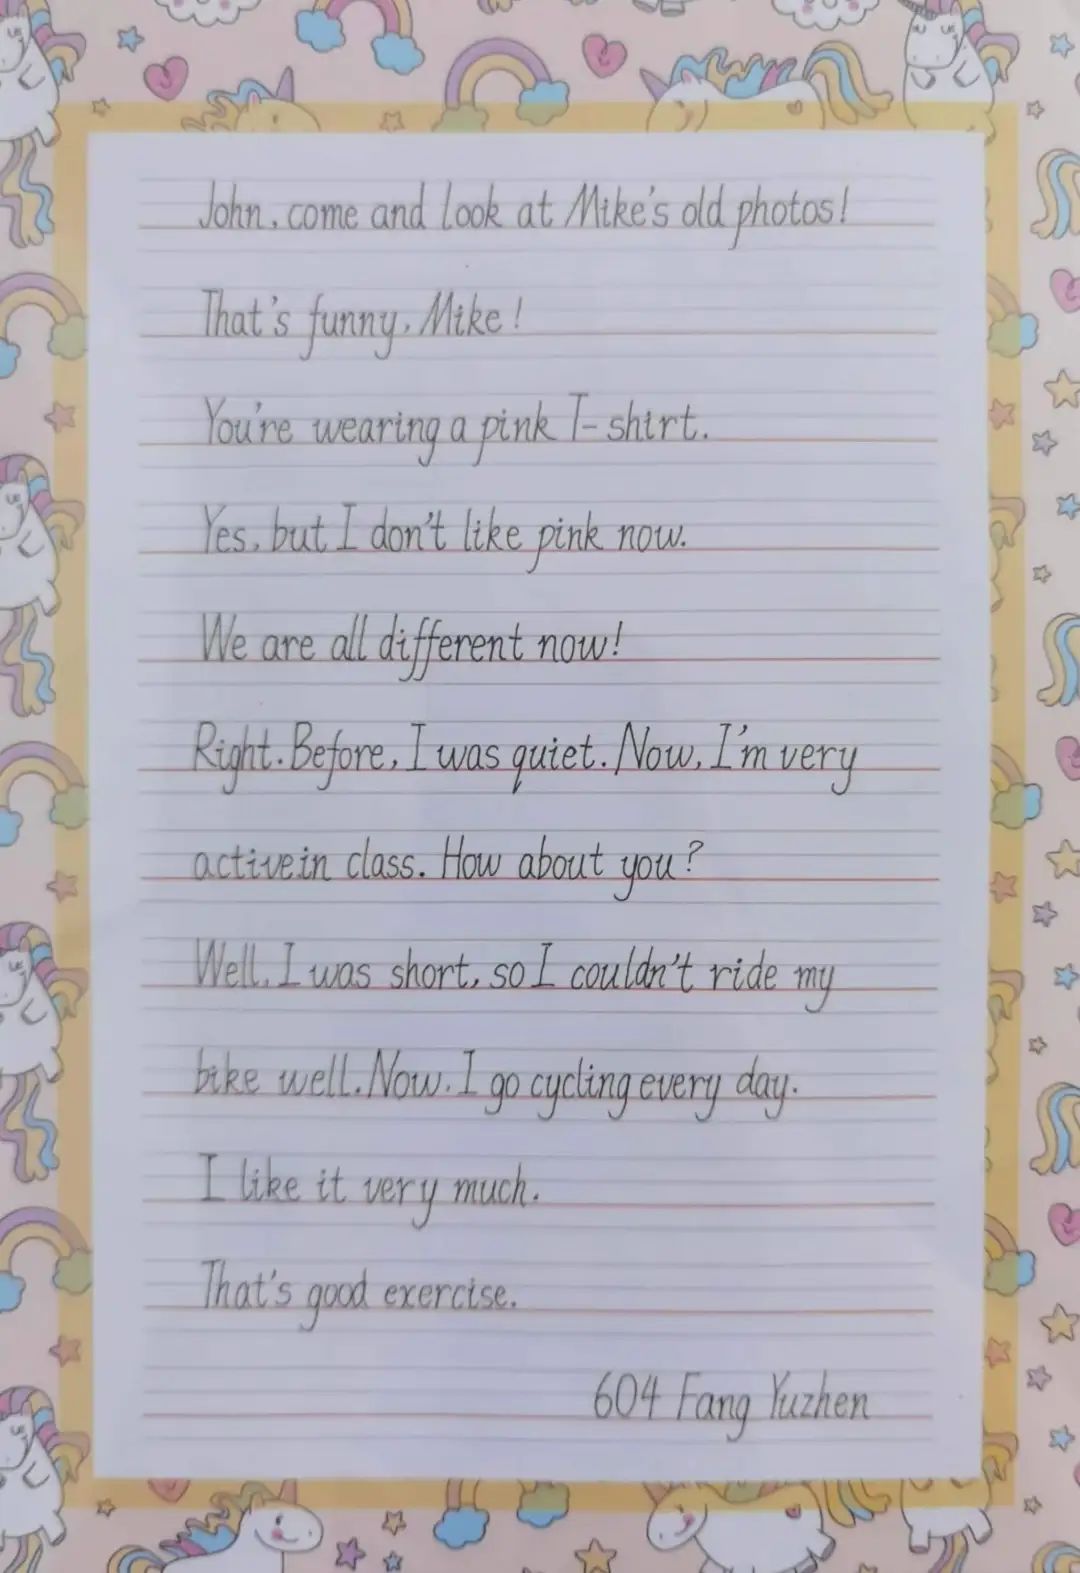 John, come and look at Mike's old photos!
That's funny, Mike!
You're wearing a pink T-shirt.
Yes, but I don't like pink now.
We are all different now!
Right. Before, I was quiet. Now, I'm very
activein class. How about you?
Well, I was short, so I couldn't ride my
bike well. Now, I go cycling every day.
I like it very much.
That's good exercise.
604 Fang Yuzhen